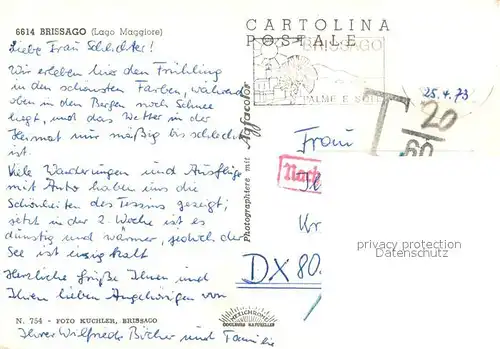 6614 BRISSAGO (Lago Maggiore)
Liebe Frau Schlichter!
Wir erleben hier den Frühling
in den schönsten Farben, während
oben in den Bergen noch Schnee
liegt, und das Wetter in der
Heimat nur mäßig bis schlecht
ist.
Viele Wanderungen und Ausflüge
mit Auto haben uns die
Schönheiten des Tessins gezeigt;
jetzt in der 2. Woche ist es
dunstig und wärmer, jedoch der
See ist eisig kalt
Herzliche Grüße Ihnen und
Ihren lieben Angehörigen von
N. 754 - FOTO KUCHLER, BRISSAGO
Ihrer Wilfriede Bücher und Familie
Photographiere mit Agfacolor
MEXICHROM
CARTOLINA
POSTALE
BRISSAGO
PALME E SOLE
25.4.73
T 20
60
Frau
Nach
DX 80.
privacy protection
Datenschutz